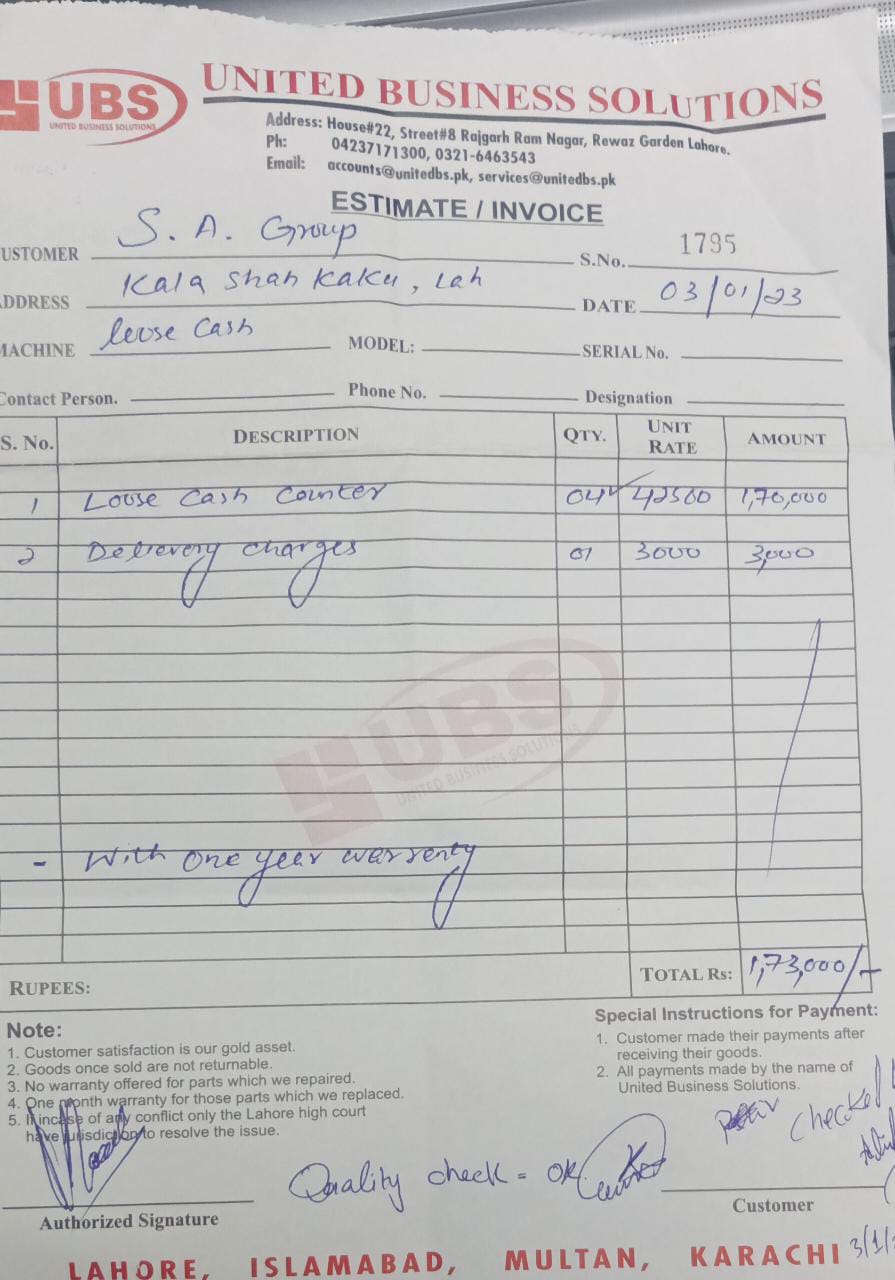 UBS
UNITED BUSINESS SOLUTIONS
UNITED BUSINESS SOLUTIONS
Address: House#22, Street#8 Rajgarh Ram Nagar, Rewaz Garden Lahore.
Ph: 04237171300, 0321-6463543
Email: accounts@unitedbs.pk, services@unitedbs.pk
ESTIMATE / INVOICE
CUSTOMER S. A. Group S.No. 1795
ADDRESS Kala Shah Kaku, Lah DATE 03/01/23
MACHINE loose Cash MODEL: SERIAL No.
Contact Person. Phone No. Designation
S. No. DESCRIPTION QTY. UNIT RATE AMOUNT
1 Loose Cash Counter 04 42500 1,70,000
2 Delievery charges 01 3000 3,000
UBS
UNITED BUSINESS SOLUTIONS
- With one year warrenty
RUPEES: TOTAL Rs: 1,73,000/-
Note:
1. Customer satisfaction is our gold asset.
2. Goods once sold are not returnable.
3. No warranty offered for parts which we repaired.
4. One month warranty for those parts which we replaced.
5. If incase of any conflict only the Lahore high court
have jurisdiction to resolve the issue.
Special Instructions for Payment:
1. Customer made their payments after
receiving their goods.
2. All payments made by the name of
United Business Solutions.
Checked
Quality check = OK
Authorized Signature
Customer
3/1/
LAHORE, ISLAMABAD, MULTAN, KARACHI